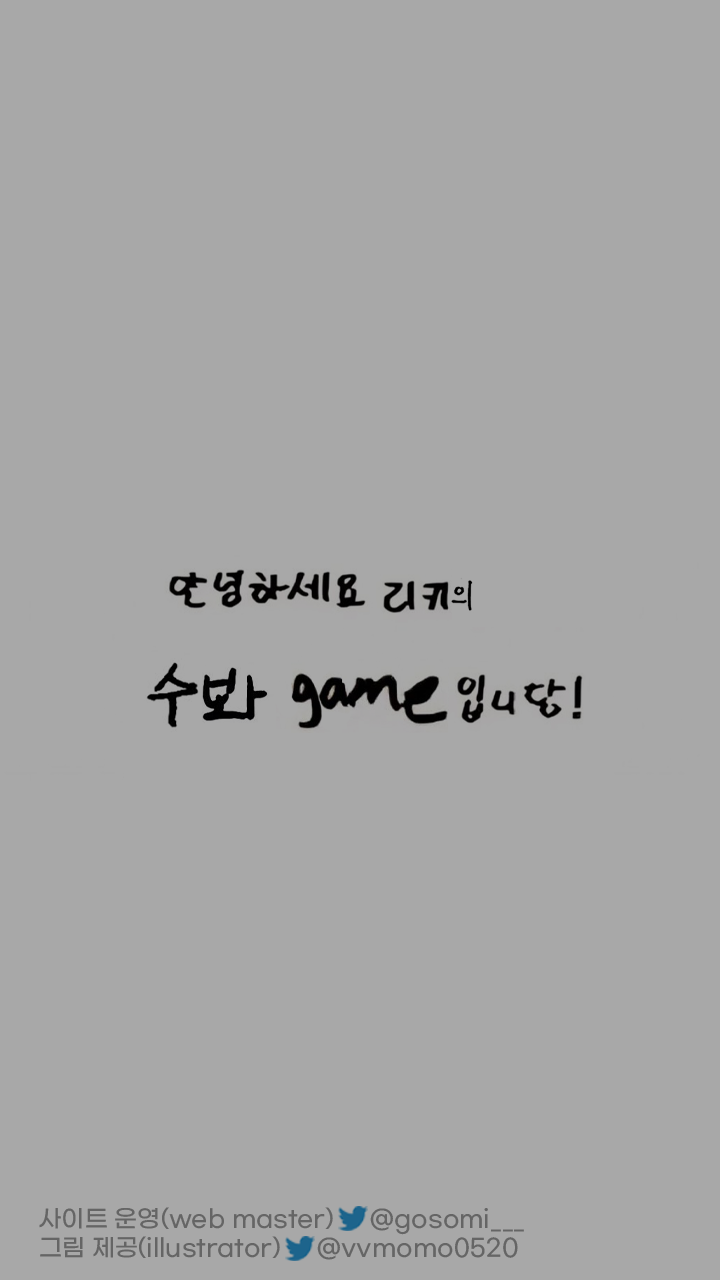 안녕하세요 리키의
수봐 game입니답!
사이트 운영(web master) @gosomi___
그림 제공(illustrator) @vvmomo0520